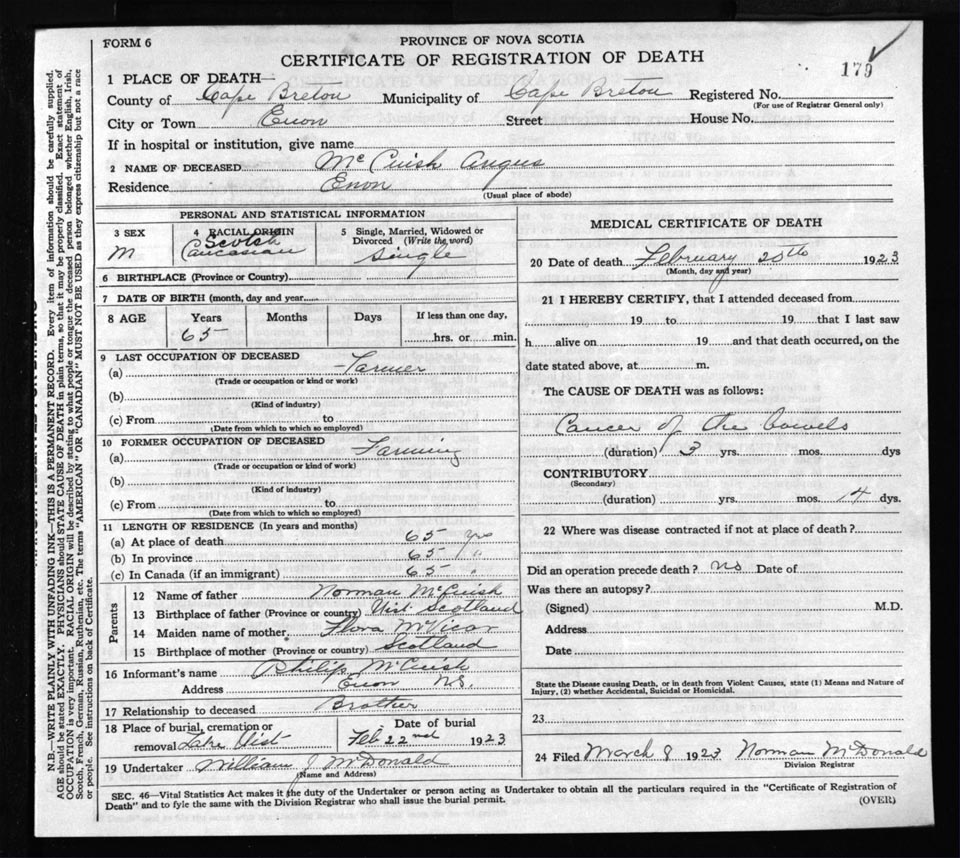 FORM 6
PROVINCE OF NOVA SCOTIA
CERTIFICATE OF REGISTRATION OF DEATH
179
1 PLACE OF DEATH—
County of Cape Breton Municipality of Cape Breton Registered No.
(For use of Registrar General only)
City or Town Enon Street House No.
If in hospital or institution, give name
2 NAME OF DECEASED McCuish Angus
Residence Enon
(Usual place of abode)
PERSONAL AND STATISTICAL INFORMATION
3 SEX M
4 RACIAL ORIGIN Scotch Caucasian
5 Single, Married, Widowed or Divorced (Write the word) Single
6 BIRTHPLACE (Province or Country)
7 DATE OF BIRTH (month, day and year)
8 AGE Years Months Days If less than one day,
65 hrs. or min.
9 LAST OCCUPATION OF DECEASED
(a) Farmer
(Trade or occupation or kind of work)
(b)
(Kind of industry)
(c) From to
(Date from which to which so employed)
10 FORMER OCCUPATION OF DECEASED
(a) Farming
(Trade or occupation or kind of work)
(b)
(Kind of industry)
(c) From to
(Date from which to which so employed)
11 LENGTH OF RESIDENCE (In years and months)
(a) At place of death 65 yrs
(b) In province 65 "
(c) In Canada (if an immigrant) 65 "
Parents
12 Name of father Norman McCuish
13 Birthplace of father (Province or country) Uist Scotland
14 Maiden name of mother Flora McVicar
15 Birthplace of mother (Province or country) Scotland
16 Informant's name Philip McCuish
Address Enon N.S.
17 Relationship to deceased Brother
18 Place of burial, cremation or removal Lake Uist
Date of burial Feb 22nd 1923
19 Undertaker William J McDonald
(Name and Address)
MEDICAL CERTIFICATE OF DEATH
20 Date of death February 20th 1923
(Month, day and year)
21 I HEREBY CERTIFY, that I attended deceased from
19 to 19 that I last saw
h alive on 19 and that death occurred, on the
date stated above, at m.
The CAUSE OF DEATH was as follows:
Cancer of the bowels
(duration) 3 yrs. mos. dys
CONTRIBUTORY
(Secondary)
(duration) yrs. mos. 14 dys.
22 Where was disease contracted if not at place of death?
Did an operation precede death? no Date of
Was there an autopsy?
(Signed) M.D.
Address
Date
State the Disease causing Death, or in death from Violent Causes, state (1) Means and Nature of
Injury, (2) whether Accidental, Suicidal or Homicidal.
23
24 Filed March 8 1923 Norman McDonald
Division Registrar
SEC. 46—Vital Statistics Act makes it the duty of the Undertaker or person acting as Undertaker to obtain all the particulars required in the "Certificate of Registration of
Death" and to fyle the same with the Division Registrar who shall issue the burial permit.
(OVER)
N.B.—WRITE PLAINLY WITH UNFADING INK—THIS IS A PERMANENT RECORD. Every item of information should be carefully supplied.
AGE should be stated EXACTLY. PHYSICIANS should STATE CAUSE OF DEATH in plain terms, so that it may be properly classified. Exact statement of
OCCUPATION is very important. RACIAL ORIGIN will be described by stating to what people or tongue the deceased person belonged whether English, Irish,
Scotch, French, German, Russian, Ruthenian, etc. The terms "AMERICAN" OR "CANADIAN" MUST NOT BE USED as they express citizenship but not a race
or people. See instructions on back of Certificate.